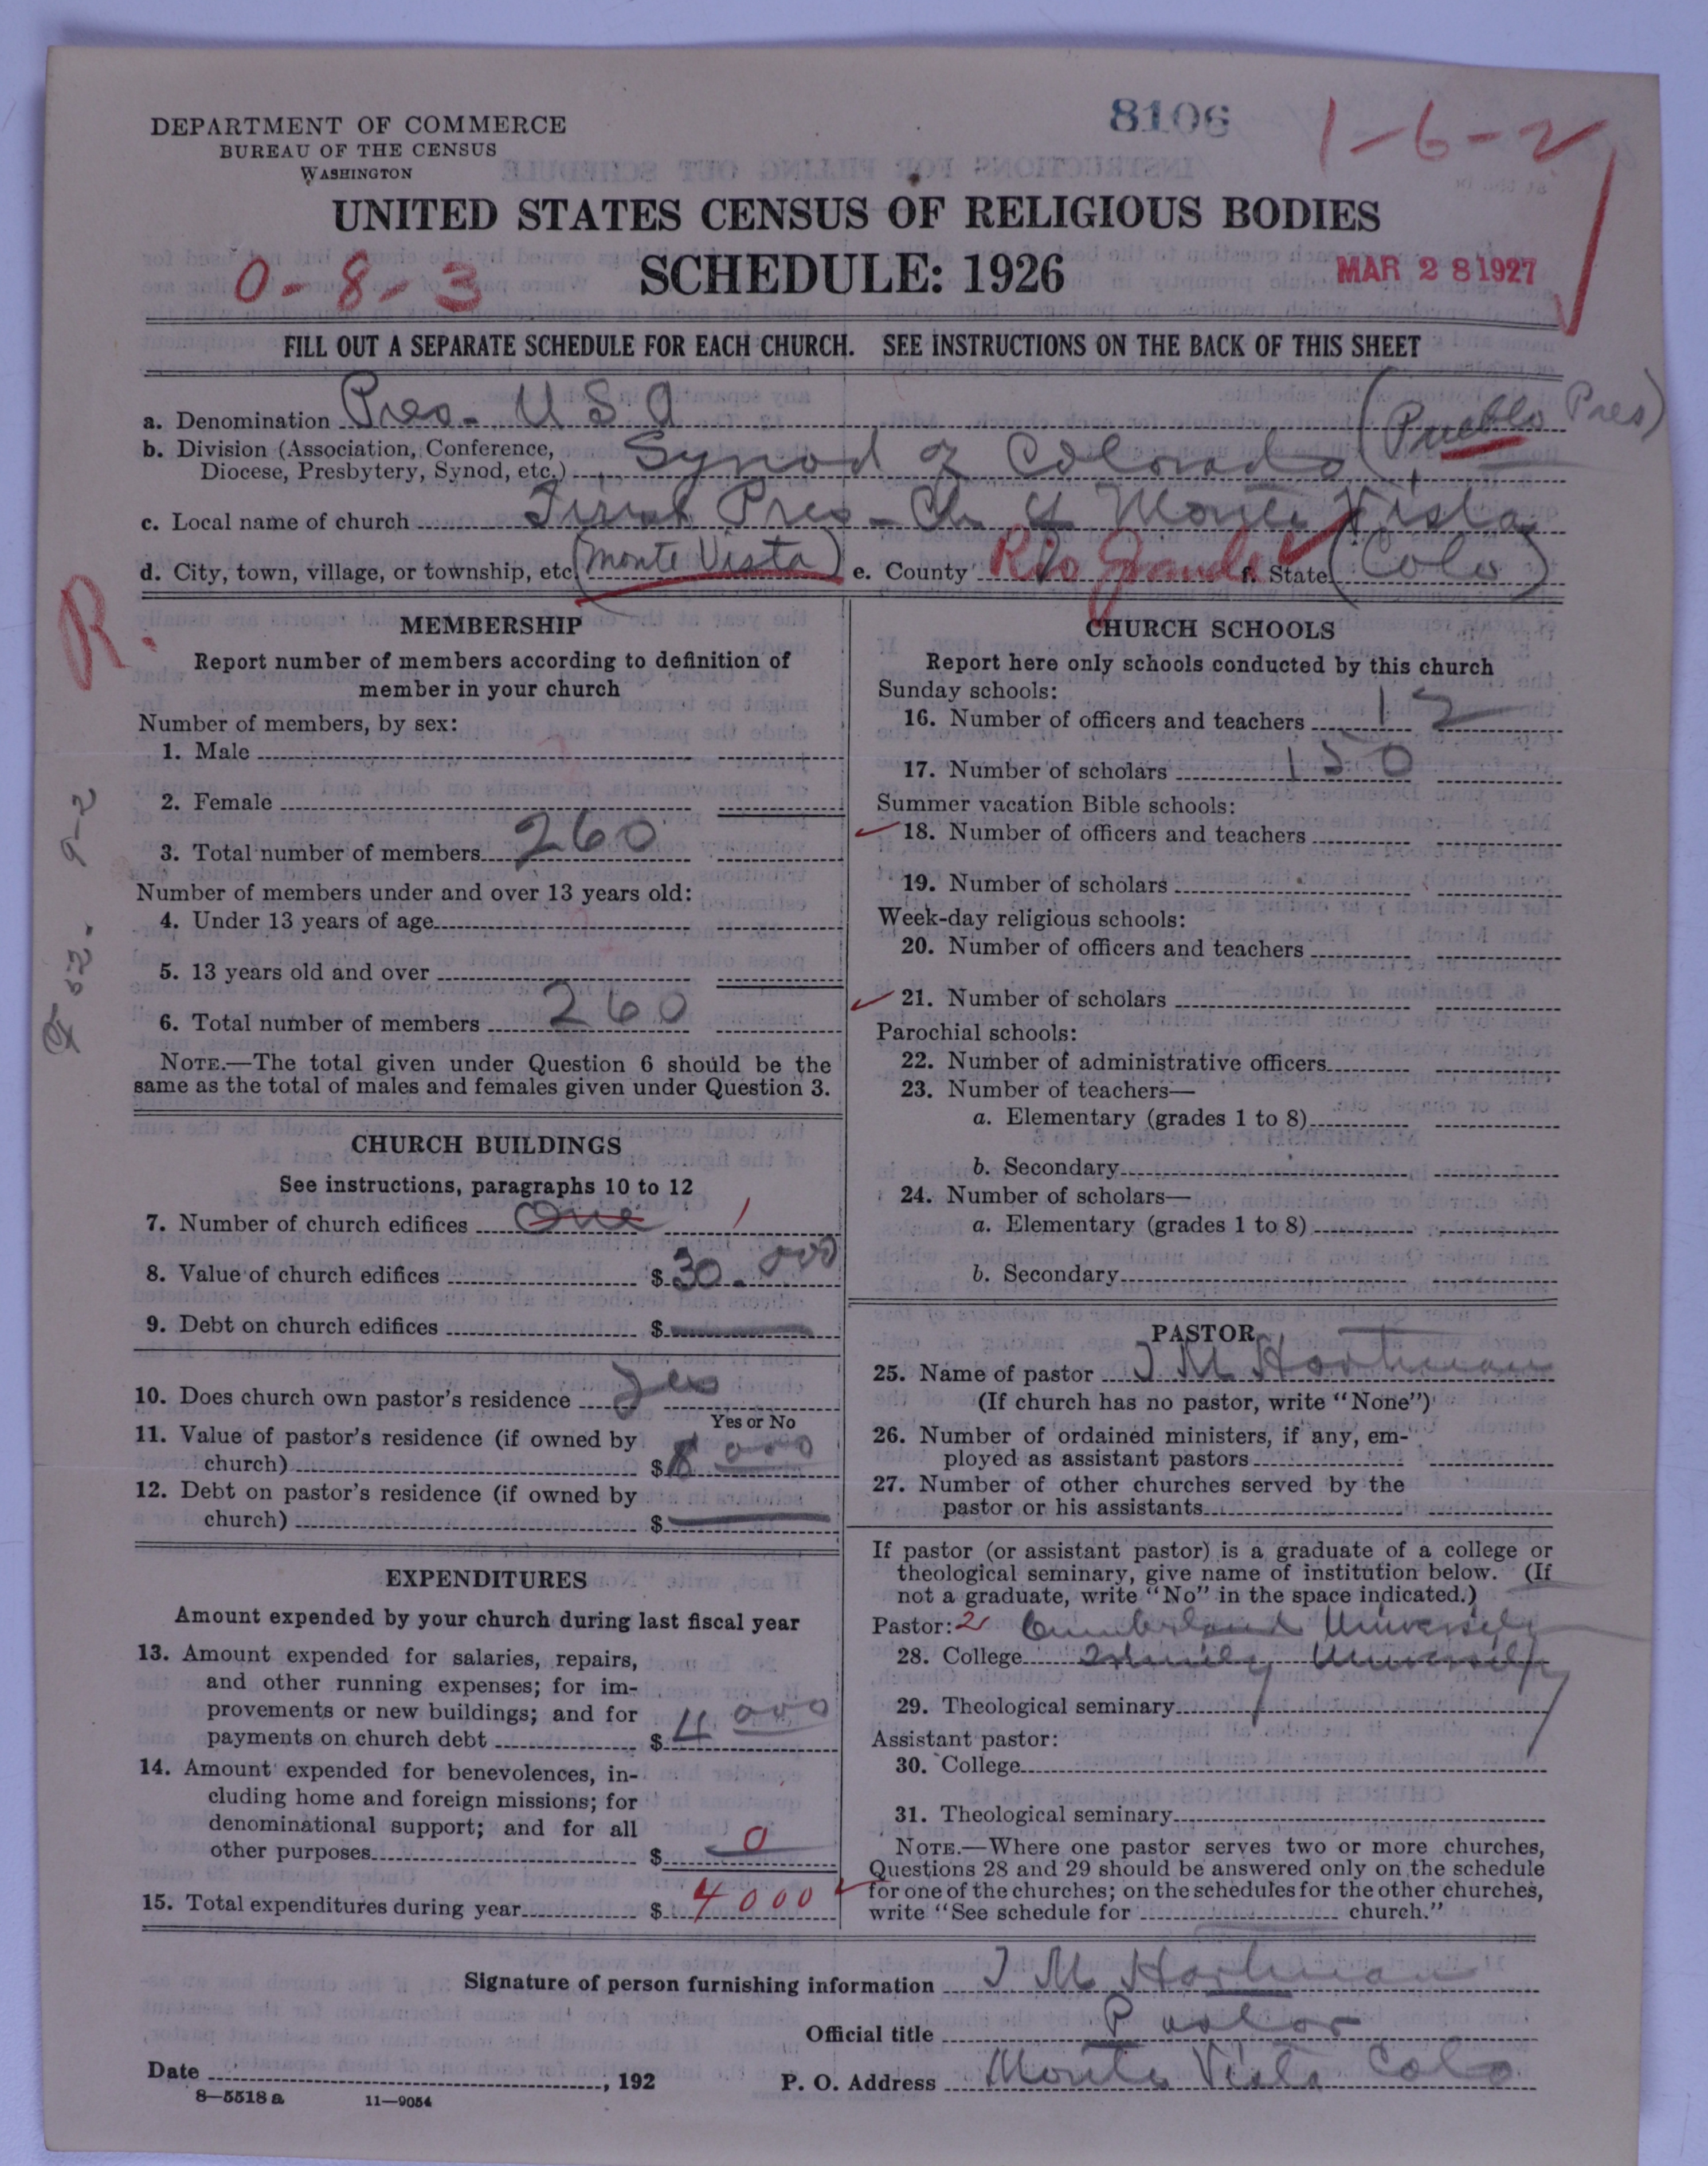 8106
1-6-2
DEPARTMENT OF COMMERCE
BUREAU OF THE CENSUS
WASHINGTON
UNITED STATES CENSUS OF RELIGIOUS BODIES
SCHEDULE: 1926
0-8-3
MAR 28 1927
FILL OUT A SEPARATE SCHEDULE FOR EACH CHURCH. SEE INSTRUCTIONS ON THE BACK OF THIS SHEET
a. Denomination Pres- U S A
b. Division (Association, Conference, Diocese, Presbytery, Synod, etc.) Synod of Colorado (Pueblo Pres)
c. Local name of church First Pres- Ch of Monte Vista
d. City, town, village, or township, etc. (Monte Vista) e. County Rio Grande f. State (Colo)
R.
9-2
MEMBERSHIP
Report number of members according to definition of
member in your church
Number of members, by sex:
1. Male
2. Female
3. Total number of members 260
Number of members under and over 13 years old:
4. Under 13 years of age
5. 13 years old and over
6. Total number of members 260
NOTE.—The total given under Question 6 should be the
same as the total of males and females given under Question 3.
CHURCH BUILDINGS
See instructions, paragraphs 10 to 12
7. Number of church edifices One 1
8. Value of church edifices $ 30.000
9. Debt on church edifices $
10. Does church own pastor's residence Yes
Yes or No
11. Value of pastor's residence (if owned by
church) $ 8 000
12. Debt on pastor's residence (if owned by
church) $
EXPENDITURES
Amount expended by your church during last fiscal year
13. Amount expended for salaries, repairs,
and other running expenses; for im-
provements or new buildings; and for
payments on church debt $ 4 000
14. Amount expended for benevolences, in-
cluding home and foreign missions; for
denominational support; and for all
other purposes $ 0
15. Total expenditures during year $ 4000
CHURCH SCHOOLS
Report here only schools conducted by this church
Sunday schools:
16. Number of officers and teachers 12
17. Number of scholars 150
Summer vacation Bible schools:
18. Number of officers and teachers
19. Number of scholars
Week-day religious schools:
20. Number of officers and teachers
21. Number of scholars
Parochial schools:
22. Number of administrative officers
23. Number of teachers—
a. Elementary (grades 1 to 8)
b. Secondary
24. Number of scholars—
a. Elementary (grades 1 to 8)
b. Secondary
PASTOR
25. Name of pastor J M Hartman
(If church has no pastor, write "None")
26. Number of ordained ministers, if any, em-
ployed as assistant pastors
27. Number of other churches served by the
pastor or his assistants
If pastor (or assistant pastor) is a graduate of a college or
theological seminary, give name of institution below. (If
not a graduate, write "No" in the space indicated.)
Pastor: 2 Cumberland University
28. College Trinity University
29. Theological seminary
Assistant pastor:
30. College
31. Theological seminary
NOTE.—Where one pastor serves two or more churches,
Questions 28 and 29 should be answered only on the schedule
for one of the churches; on the schedules for the other churches,
write "See schedule for church."
Signature of person furnishing information J M Hartman
Official title Pastor
Date , 192 P. O. Address Monte Vista Colo
8—5518 a 11—9054